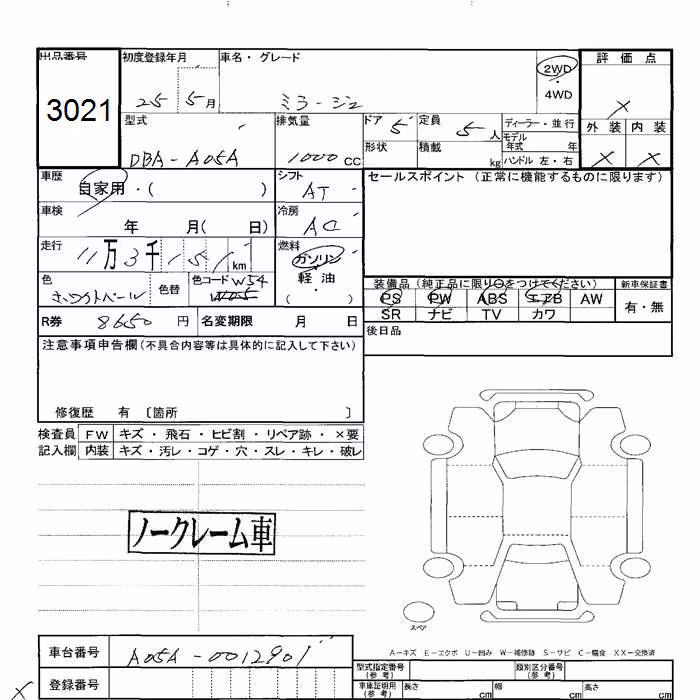 出品番号 初度登録年月 車名・グレード 2WD ・ 4WD 評価点
3021 25 5月 ミラージュ ×
型式 排気量 ドア 5 定員 5人 ディーラー・並行 外装 内装
DBA-A05A 1000cc 形状 積載 kg モデル年式 年 × ×
ハンドル 左・右
車歴 自家用・( ) シフト AT セールスポイント (正常に機能するものに限ります)
車検 年 月( 日) 冷房 AC
走行 11万3千151km 燃料 ガソリン ・ 軽油 ( )
色 ホワイトパール 色替 色コード W54
装備品 (純正品に限り○をつけてください) 新車保証書
PS PW ABS エアB AW 有・無
SR ナビ TV カワ
R券 8650円 名変期限 月 日 後日品
注意事項申告欄(不具合内容等は具体的に記入して下さい)
修復歴 有 〔箇所 〕
検査員 FW キズ・飛石・ヒビ割・リペア跡・×要
記入欄 内装 キズ・汚レ・コゲ・穴・スレ・キレ・破レ
ノークレーム車
スペア
A-キズ E-エクボ U-凹み W-補修跡 S-サビ C-腐食 XX-交換済
車台番号 A05A-0012901
登録番号
型式指定番号(参考) 類別区分番号(参考)
車庫証明用(参考) 長さ cm 幅 cm 高さ cm
×